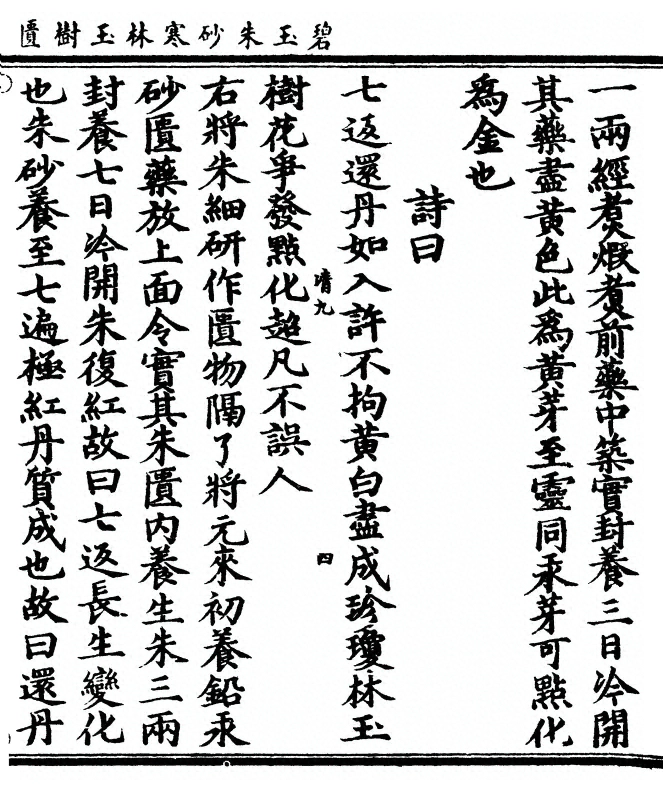 碧玉朱砂寒林玉樹匱
一兩經煑煆煑前藥中築實封養三日冷開
其藥盡黃色此為黃芽至靈同汞芽可點化
為金也
詩曰
七返還丹如入許不拘黃白盡成珍瓊林玉
樹花爭發點化超凡不誤人
清九
四
右將朱細研作匱物隔了將元來初養鉛汞
砂匱藥放上面令實其朱匱內養生朱三兩
封養七日冷開朱復紅故曰七返長生變化
也朱砂養至七遍極紅丹質成也故曰還丹